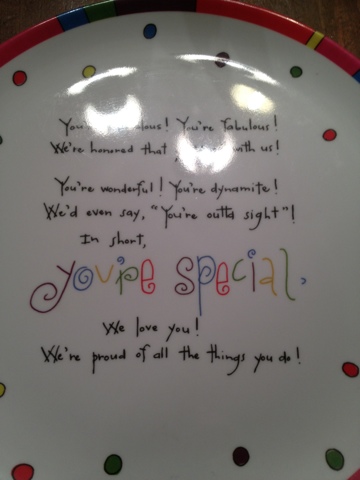 You're fabulous!
We're honored that with us!
You're wonderful! You're dynamite!
We'd even say, "You're outta sight"!
In short,
you're special.
We love you!
We're proud of all the things you do!